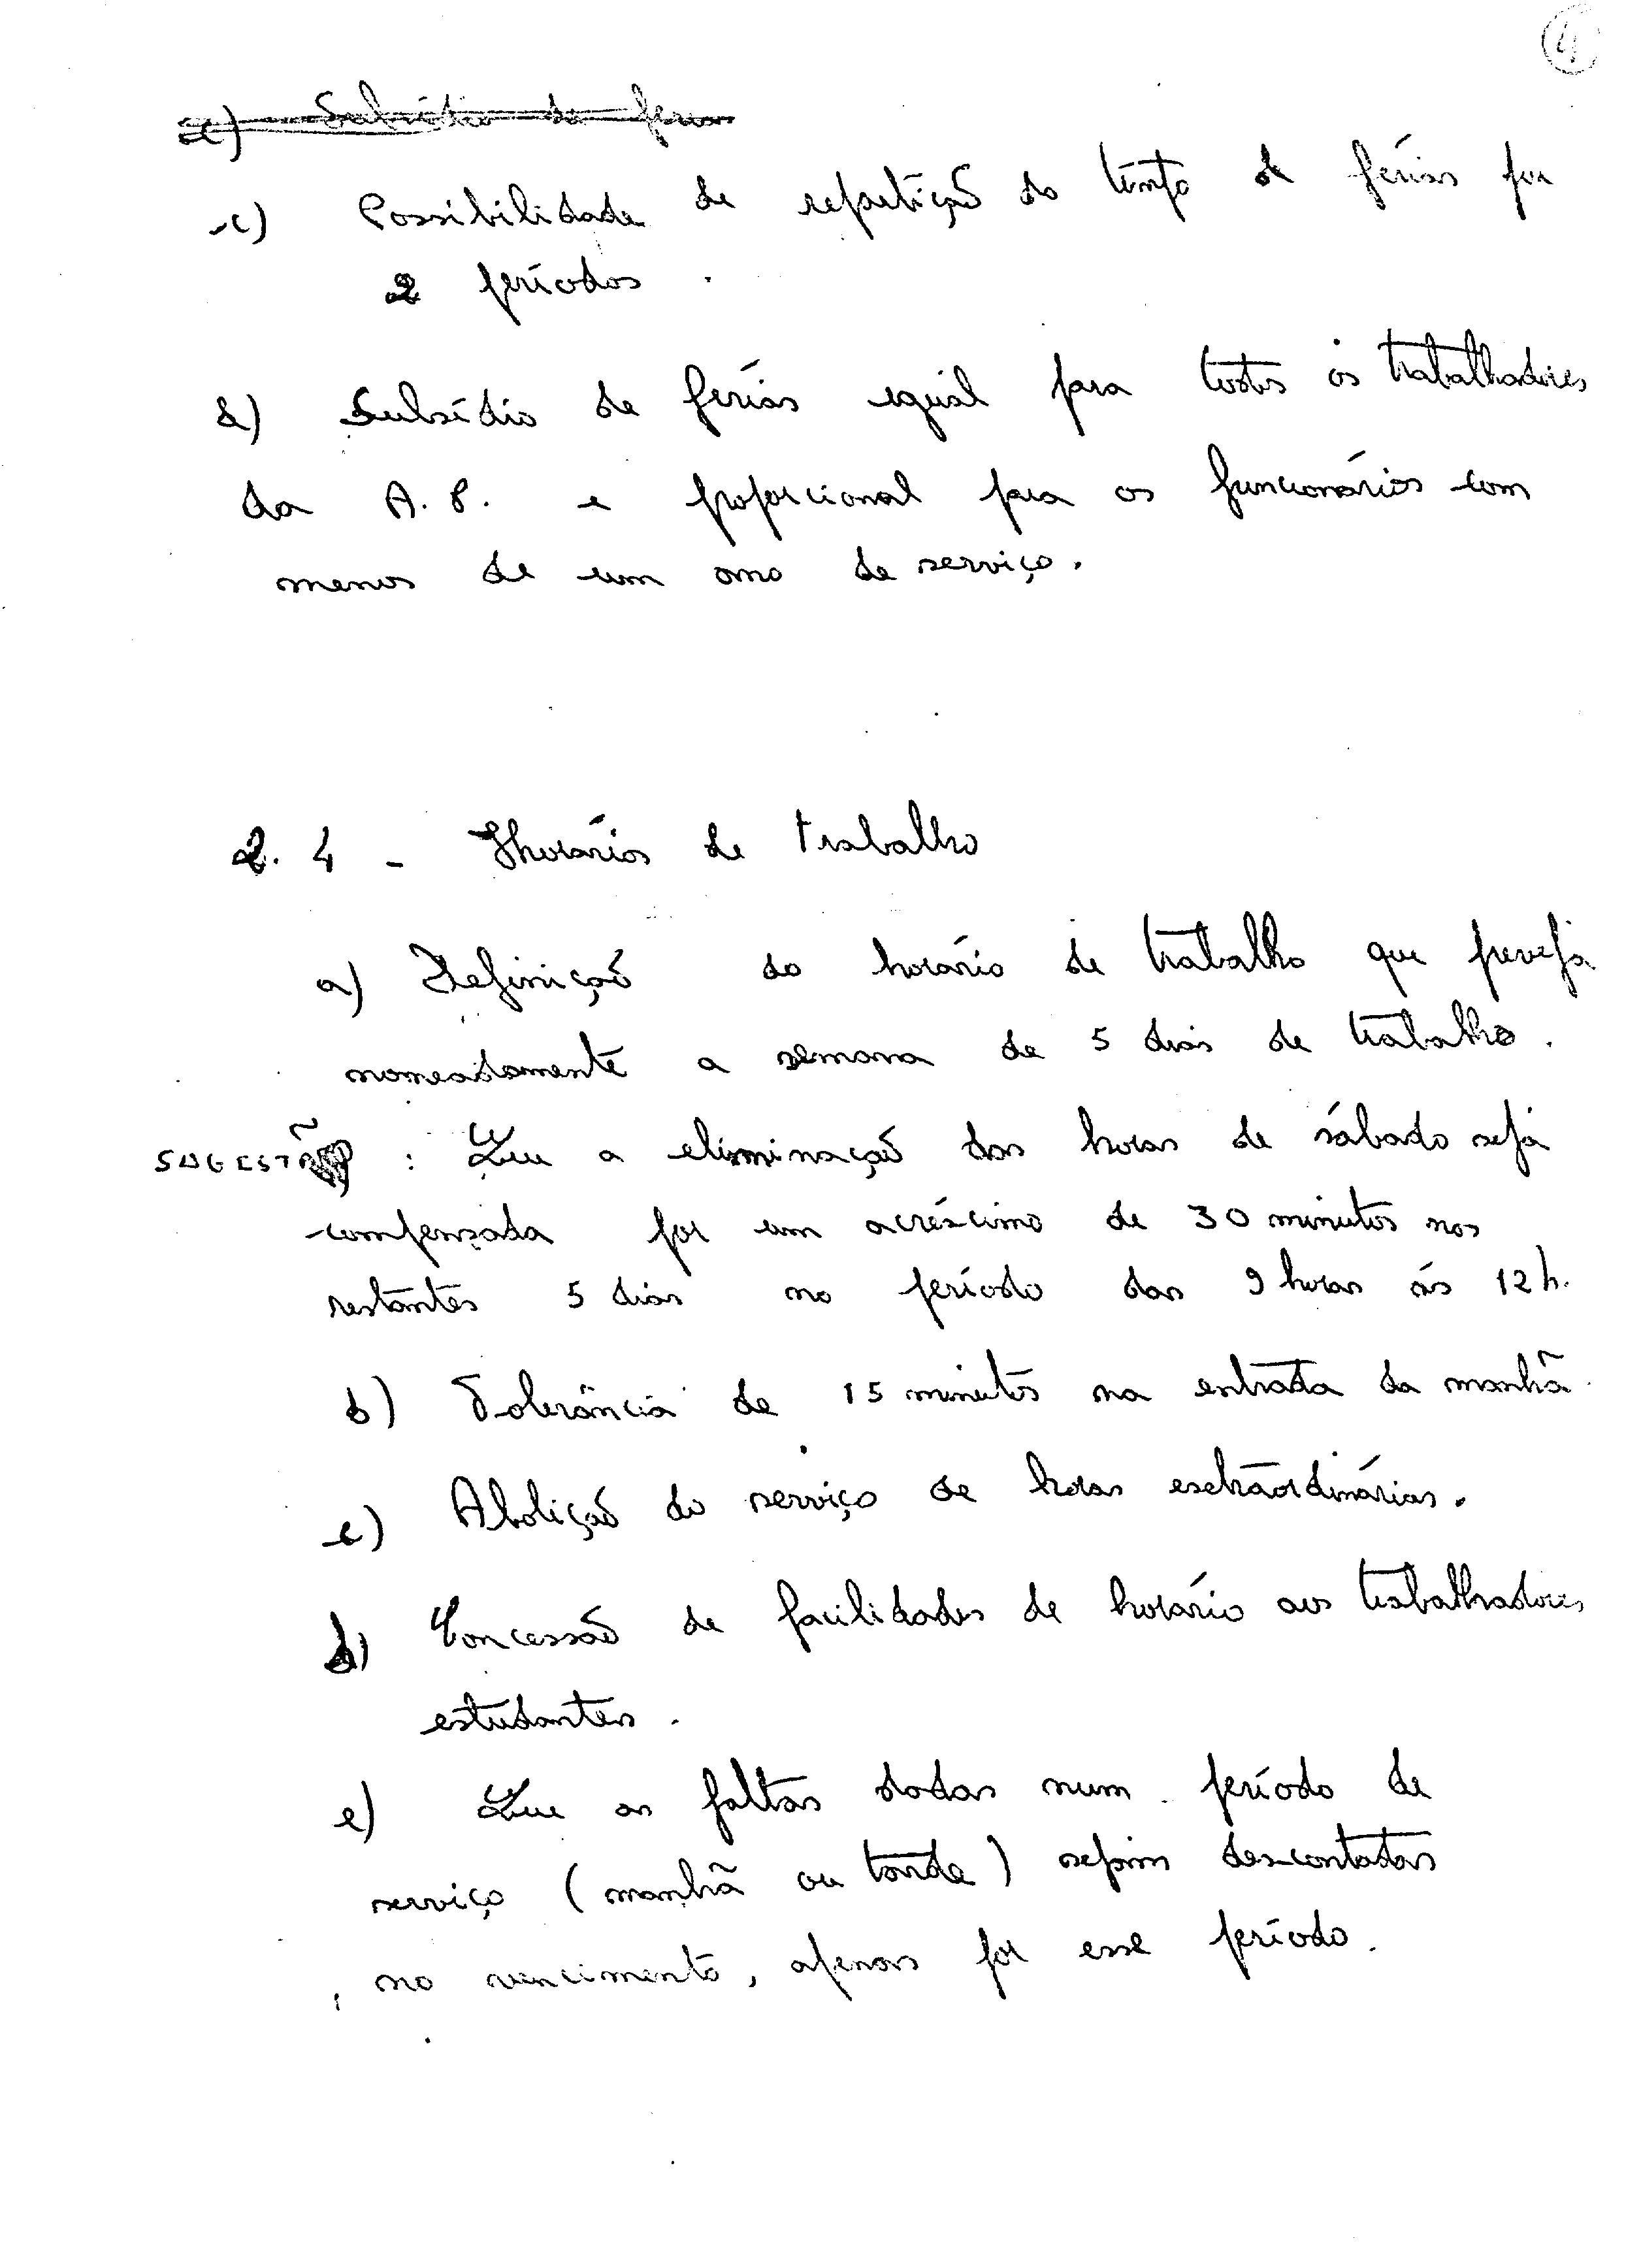 4
c) Subsídio de férias
c) Possibilidade de repartição do tempo de férias por
2 períodos.
d) Subsídio de férias igual para todos os trabalhadores
da A.P. e proporcional para os funcionários com
menos de um ano de serviço.
2.4 - Horários de trabalho
a) Definição do horário de trabalho que preveja
nomeadamente a semana de 5 dias de trabalho.
SUGESTÃO : Que a eliminação das horas de sábado seja
compensada por um acréscimo de 30 minutos nos
restantes 5 dias no período das 9 horas às 12h.
b) Tolerância de 15 minutos na entrada da manhã.
c) Abolição do serviço de horas extraordinárias.
d) Concessão de facilidades de horário aos trabalhadores
estudantes.
e) Que as faltas dadas num período de
serviço (manhã ou tarde) sejam descontadas
, no vencimento, apenas por esse período.